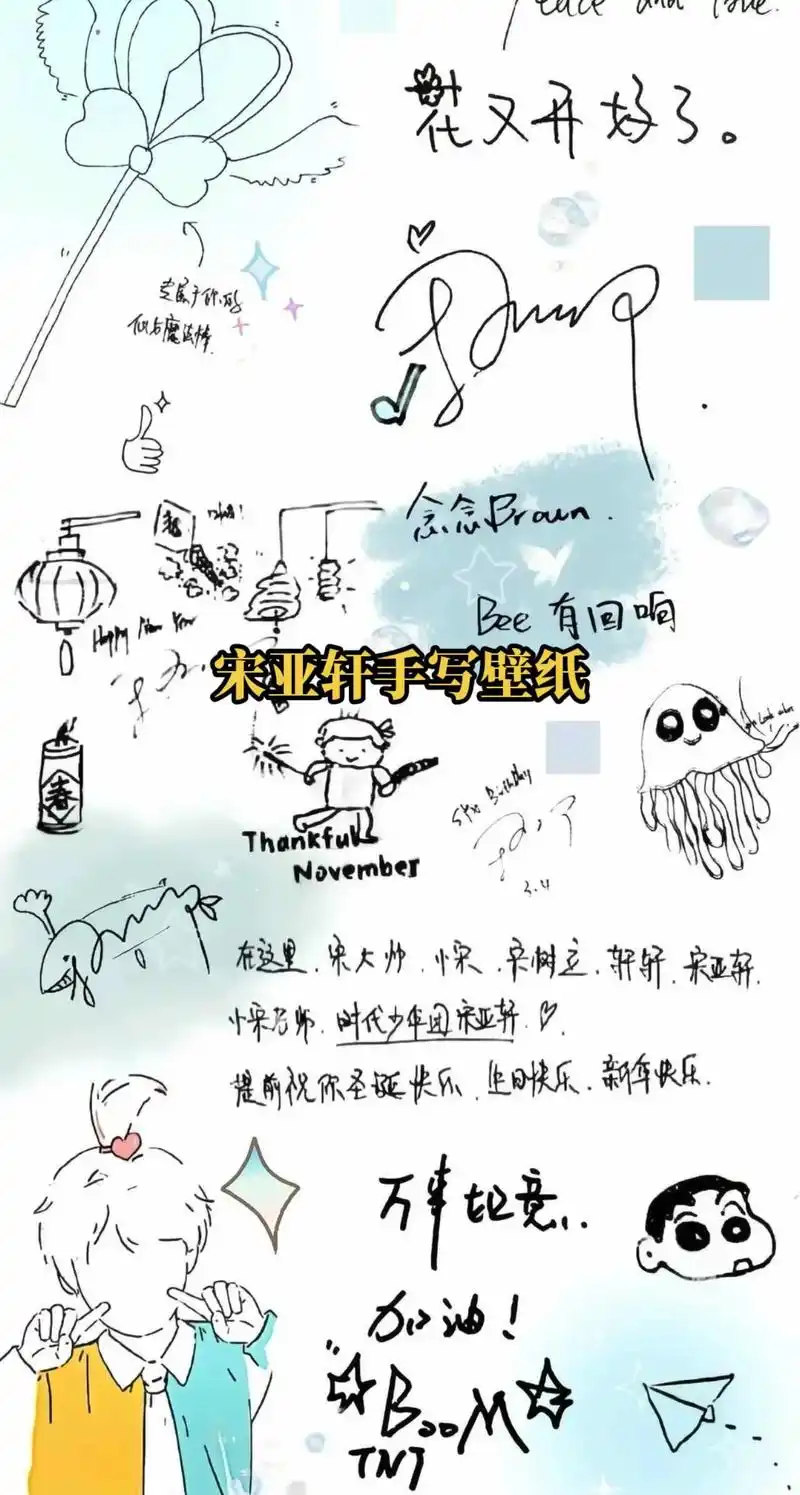 Peace and love.
花又开好了。
专属于你的
仙女魔法棒
念念Braun.
Bee有回响
Happy New Year
宋亚轩手写壁纸
春
Thankful
November
Syx Birthday
3.4
在这里、宋大帅、小宋、宋树立、轩轩、宋亚轩、
小宋老师、时代少年团宋亚轩♡.
提前祝你圣诞快乐、生日快乐、新年快乐.
万事胜意..
加油!
BOOM
TNT